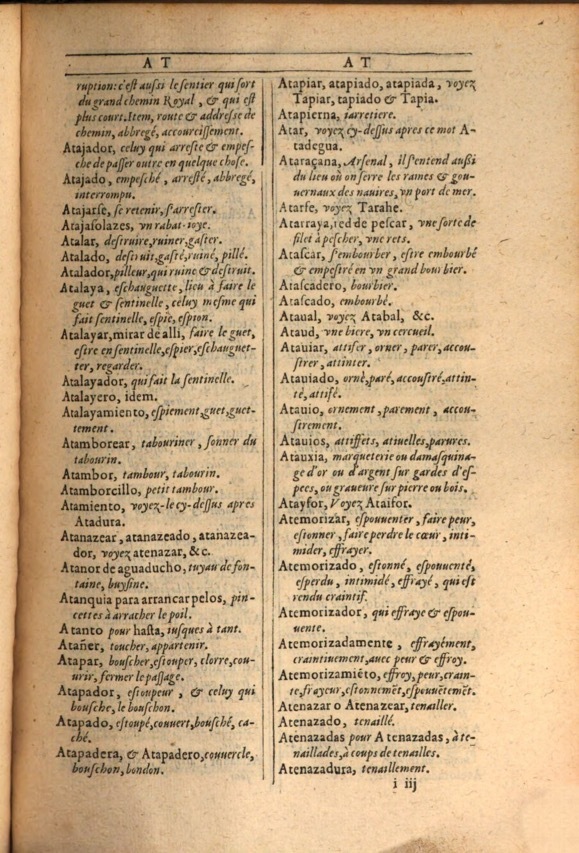 A T
ruption: c'est aussi le sentier qui sort
du grand chemin Royal, & qui est
plus court. Item, route & addresse de
chemin, abbregé, accourcissement.
Atajador, celuy qui arreste & empes-
che de passer outre en quelque chose.
Atajado, empesché, arresté, abbregé,
interrompu.
Atajarse, se retenir, s'arrester.
Atajasolazes, vn rabat-ioye.
Atalar, destruire, ruiner, gaster.
Atalado, destruit, gasté, ruiné, pillé.
Atalador, pilleur, qui ruine & destruit.
Atalaya, eschauguette, lieu à faire le
guet & sentinelle, celuy mesme qui
fait sentinelle, espie, espion.
Atalayar, mirar de alli, faire le guet,
estre en sentinelle, espier, eschauguet-
ter, regarder.
Atalayador, qui fait la sentinelle.
Atalayero, idem.
Atalayamiento, espiement, guet, guet-
tement.
Atamborear, tabouriner, sonner du
tabourin.
Atambor, tambour, tabourin.
Atamborcillo, petit tambour.
Atamiento, voyez-le cy-dessus apres
Atadura.
Atanazear, atanazeado, atanazea-
dor, voyez atenazar, &c.
Atanor de aguaducho, tuyau de fon-
taine, buysine.
Atanquia para arrancar pelos, pin-
cettes à arracher le poil.
Atanto pour hasta, iusques à tant.
Atañer, toucher, appartenir.
Atapar, bouscher, estouper, clorre, cou-
urir, fermer le passage.
Atapador, estoupeur, & celuy qui
bousche, le bouschon.
Atapado, estoupé, couuert, bousché, ca-
ché.
Atapadera, & Atapadero, couuercle,
bouschon, bondon.
A T
Atapiar, atapiado, atapiada, voyez
Tapiar, tapiado & Tapia.
Atapierna, iarretiere.
Atar, voyez cy-dessus apres ce mot A-
tadegua.
Ataraçana, Arsenal, il s'entend aussi
du lieu où on serre les rames & gou-
uernaux des nauires, vn port de mer.
Atarfe, voyez Tarahe.
Atarraya, red de pescar, vne sorte de
filet à pescher, vne rets.
Atascar, s'embourber, estre embourbé
& empestré en vn grand bourbier.
Atascadero, bourbier.
Atascado, embourbé.
Ataual, voyez Atabal, &c.
Ataud, vne biere, vn cercueil.
Atauiar, attifer, orner, parer, accou-
strer, attinter.
Atauiado, orné, paré, accoustré, attin-
té, attifé.
Atauio, ornement, parement, accou-
strement.
Atauios, attiffets, atiuelles, parures.
Atauxia, marqueterie ou damasquina-
ge d'or ou d'argent sur gardes d'es-
pees, ou graueure sur pierre ou bois.
Atayfor, Voyez Ataifor.
Atemorizar, espouuenter, faire peur,
estonner, faire perdre le cœur, inti-
mider, effrayer.
Atemorizado, estonné, espouuenté,
esperdu, intimidé, effrayé, qui est
rendu craintif.
Atemorizador, qui effraye & espou-
uente.
Atemorizadamente, effrayément,
craintiuement, auec peur & effroy.
Atemorizamiẽto, effroy, peur, crain-
te, frayeur, estonnemẽt, espouuẽtemẽt.
Atenazar o Atenazear, tenailler.
Atenazado, tenaillé.
Atenazadas pour A tenazadas, à te-
naillades, à coups de tenailles.
Atenazadura, tenaillement.
i iij